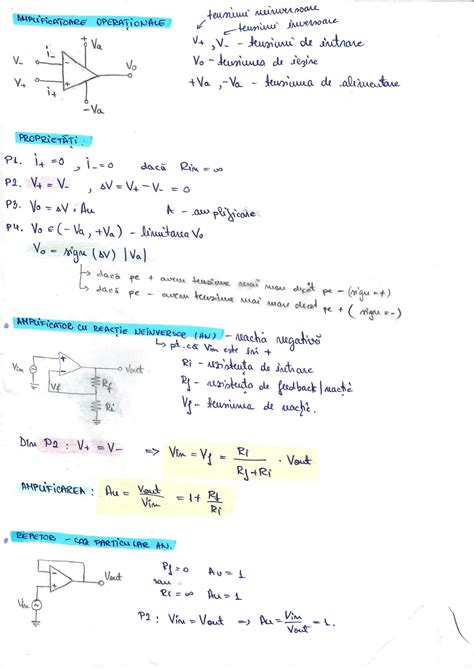 AMPLIFICATOARE OPERAȚIONALE
tensiuni neinversoare
tensiuni inversoare
V+, V- - tensiuni de intrare
V0 - tensiunea de ieșire
+Va, -Va - tensiunea de alimentare
+Va
V-
i-
V0
V+
i+
-Va
PROPRIETĂȚI:
P1. i+ = 0, i- = 0 dacă Rin = ∞
P2. V+ = V-, ΔV = V+ - V- = 0
P3. V0 = ΔV · Au A - amplificare
P4. V0 ∈ (-Va, +Va) - limitarea V0
V0 = sign (ΔV) |Va|
↳ dacă pe + avem tensiune mai mare decât pe - (sign = +)
↳ dacă pe - avem tensiune mai mare decât pe + (sign = -)
AMPLIFICATOR CU REACȚIE NEINVERSOR (AN) - reacția negativă
↳ pt. că Vin este în +
Ri - rezistența de intrare
Rf - rezistența de feedback/reacție
Vf - tensiunea de reacție.
Vin
Vout
Vf
Rf
Ri
Din P2: V+ = V- => Vin = Vf = Ri / (Rf + Ri) · Vout
AMPLIFICAREA: Au = Vout / Vin = 1 + Rf / Ri
REPETOR - CAZ PARTICULAR AN.
Rf = 0 Au = 1
sau
Ri = ∞ Au = 1
Vout
Vin
P2: Vin = Vout => Au = Vin / Vout = 1.